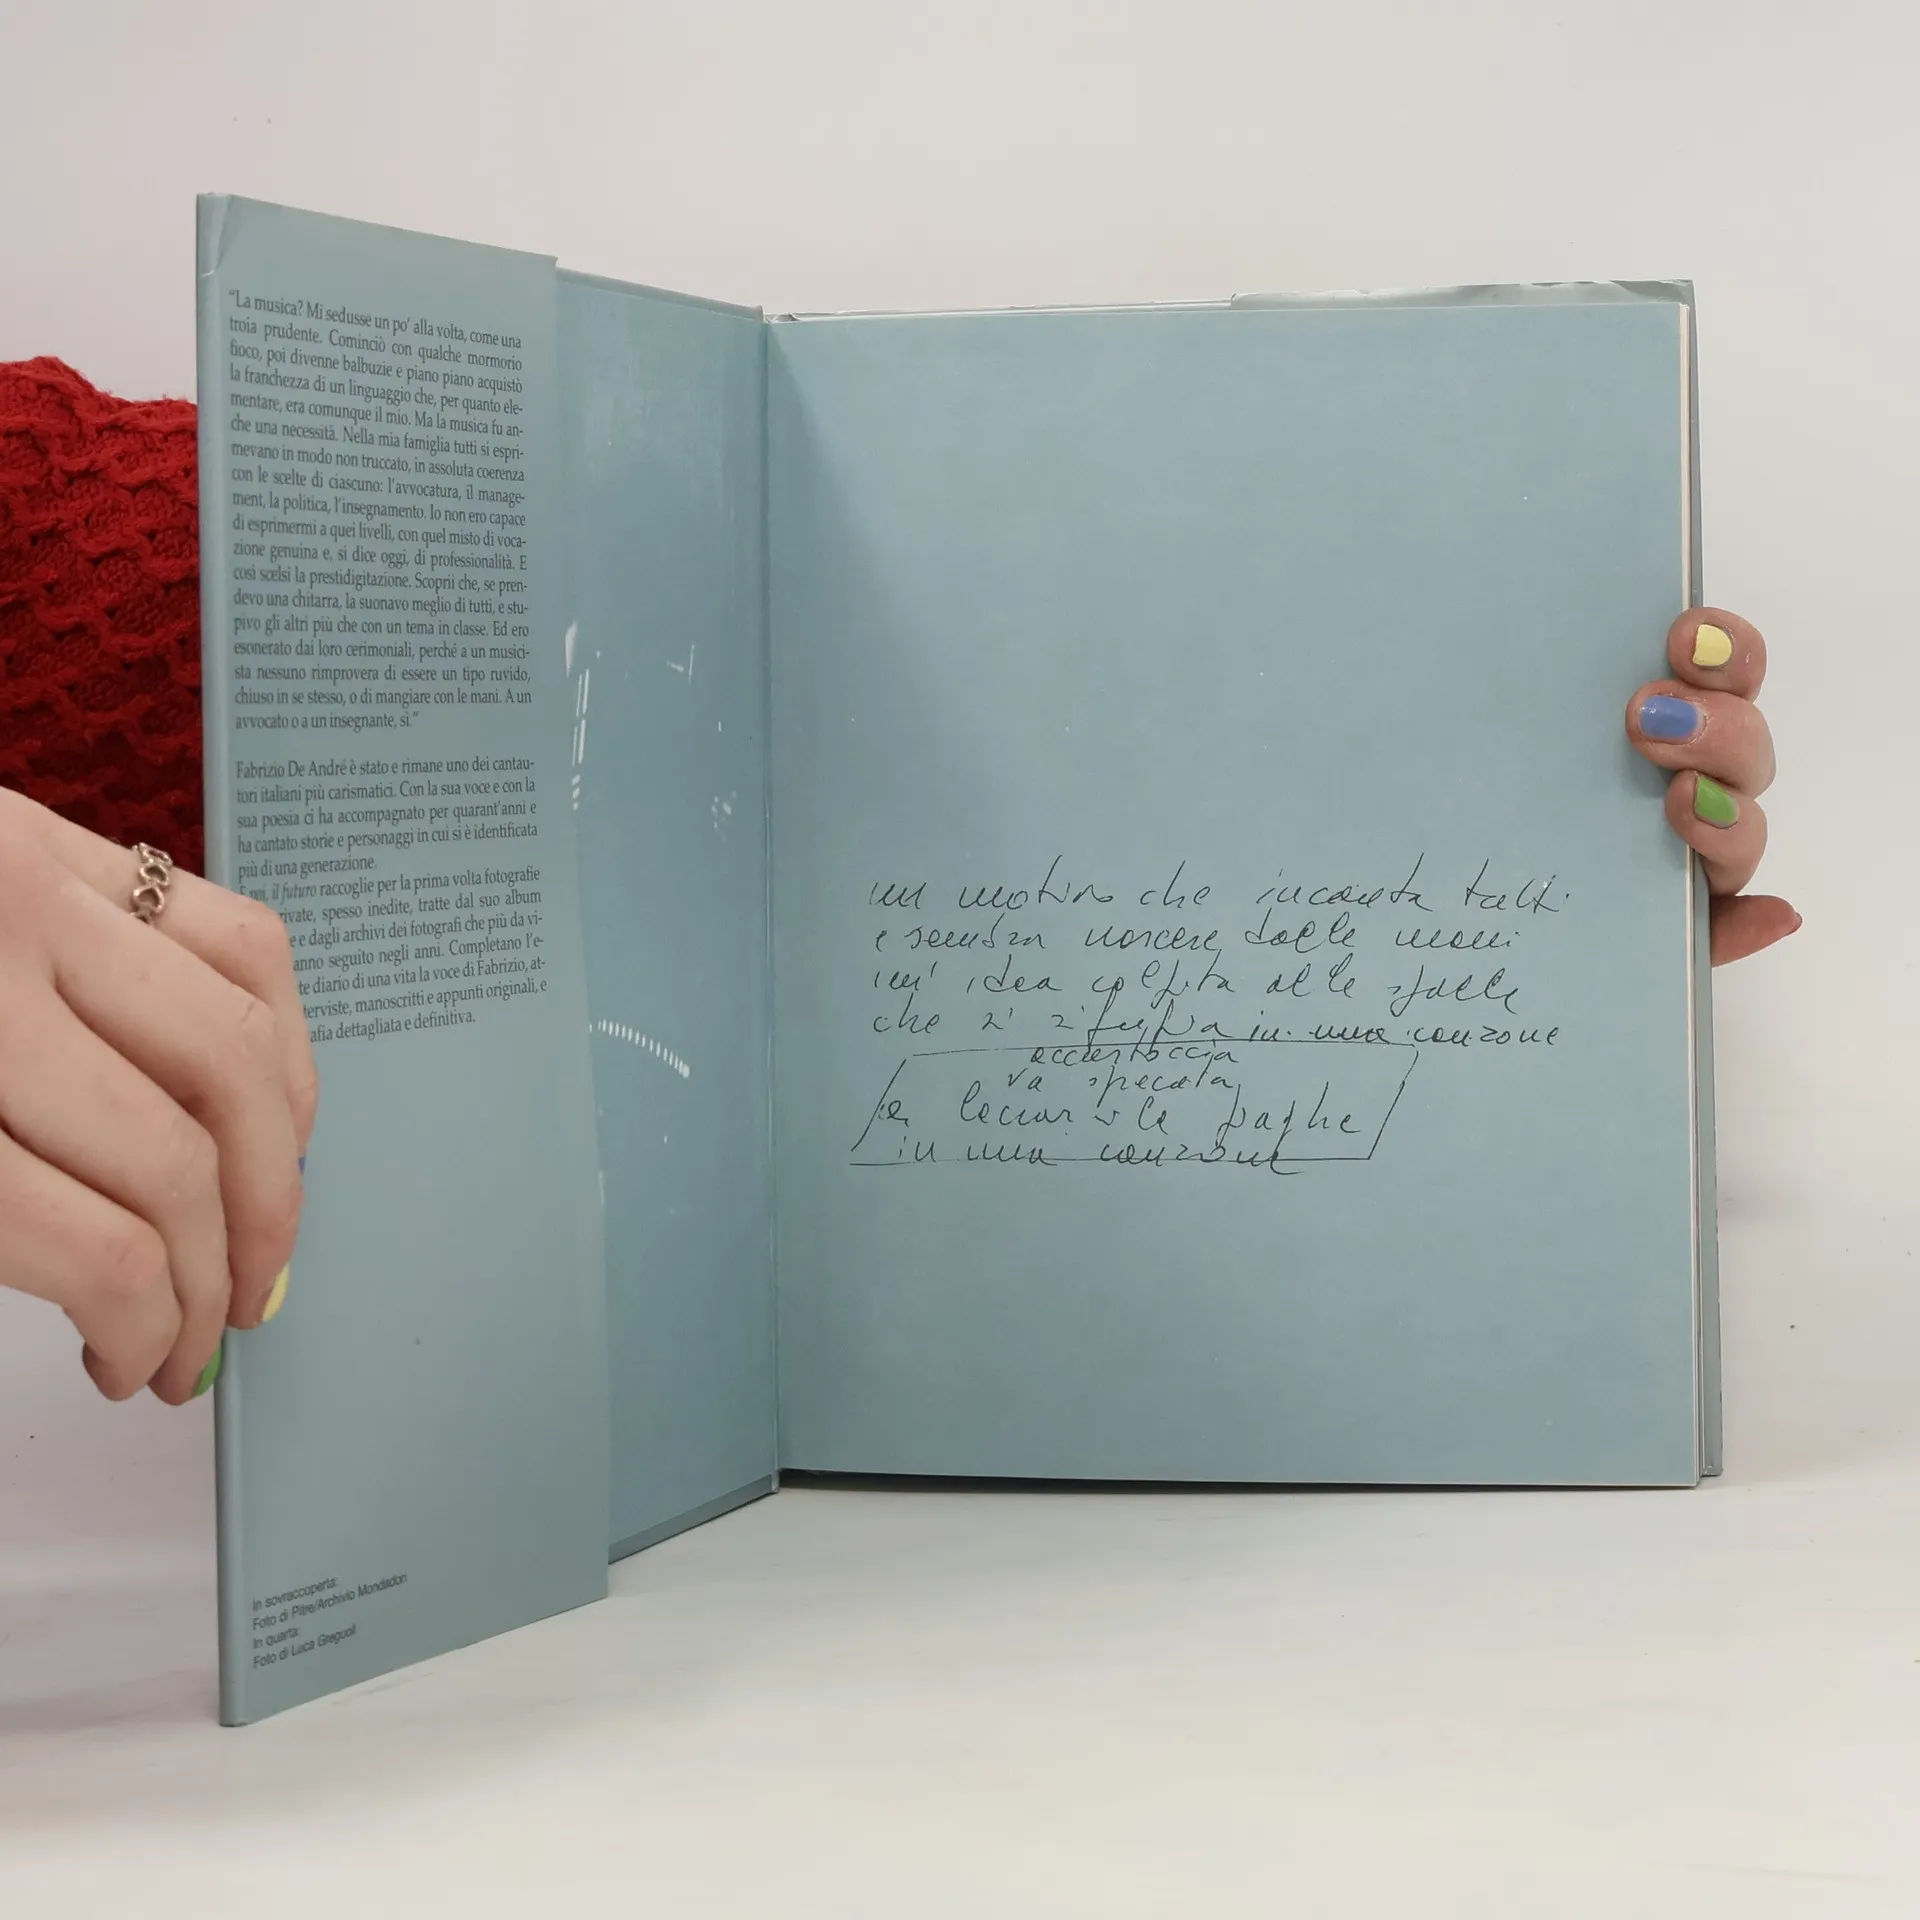 "La musica? Mi sedusse un po' alla volta, come una
troia prudente. Cominciò con qualche mormorio
fioco, poi divenne balbuzie e piano piano acquistò
la franchezza di un linguaggio che, per quanto ele-
mentare, era comunque il mio. Ma la musica fu an-
che una necessità. Nella mia famiglia tutti si espri-
mevano in modo non truccato, in assoluta coerenza
con le scelte di ciascuno: l'avvocatura, il manage-
ment, la politica, l'insegnamento. Io non ero capace
di esprimermi a quei livelli, con quel misto di voca-
zione genuina e, si dice oggi, di professionalità. E
così scelsi la prestidigitazione. Scoprii che, se pren-
devo una chitarra, la suonavo meglio di tutti, e stu-
pivo gli altri più che con un tema in classe. Ed ero
esonerato dai loro cerimoniali, perché a un musici-
sta nessuno rimprovera di essere un tipo ruvido,
chiuso in se stesso, o di mangiare con le mani. A un
avvocato o a un insegnante, sì."
Fabrizio De André è stato e rimane uno dei cantau-
tori italiani più carismatici. Con la sua voce e con la
sua poesia ci ha accompagnato per quarant'anni e
ha cantato storie e personaggi in cui si è identificata
più di una generazione.
il futuro raccoglie per la prima volta fotografie
rivate, spesso inedite, tratte dal suo album
e e dagli archivi dei fotografi che più da vi-
anno seguito negli anni. Completano l'e-
te diario di una vita la voce di Fabrizio, at-
terviste, manoscritti e appunti originali, e
afia dettagliata e definitiva.
In sovraccoperta:
Foto di Pitre/Archivio Mondadori
In quarta:
Foto di Luca Greguoli
un motivo che incanta tutti
e sembra nascere dalle mani
un' idea colpita alle spalle
che si in una canzone
accartoccia
va sprecata
le paghe
in una canzone